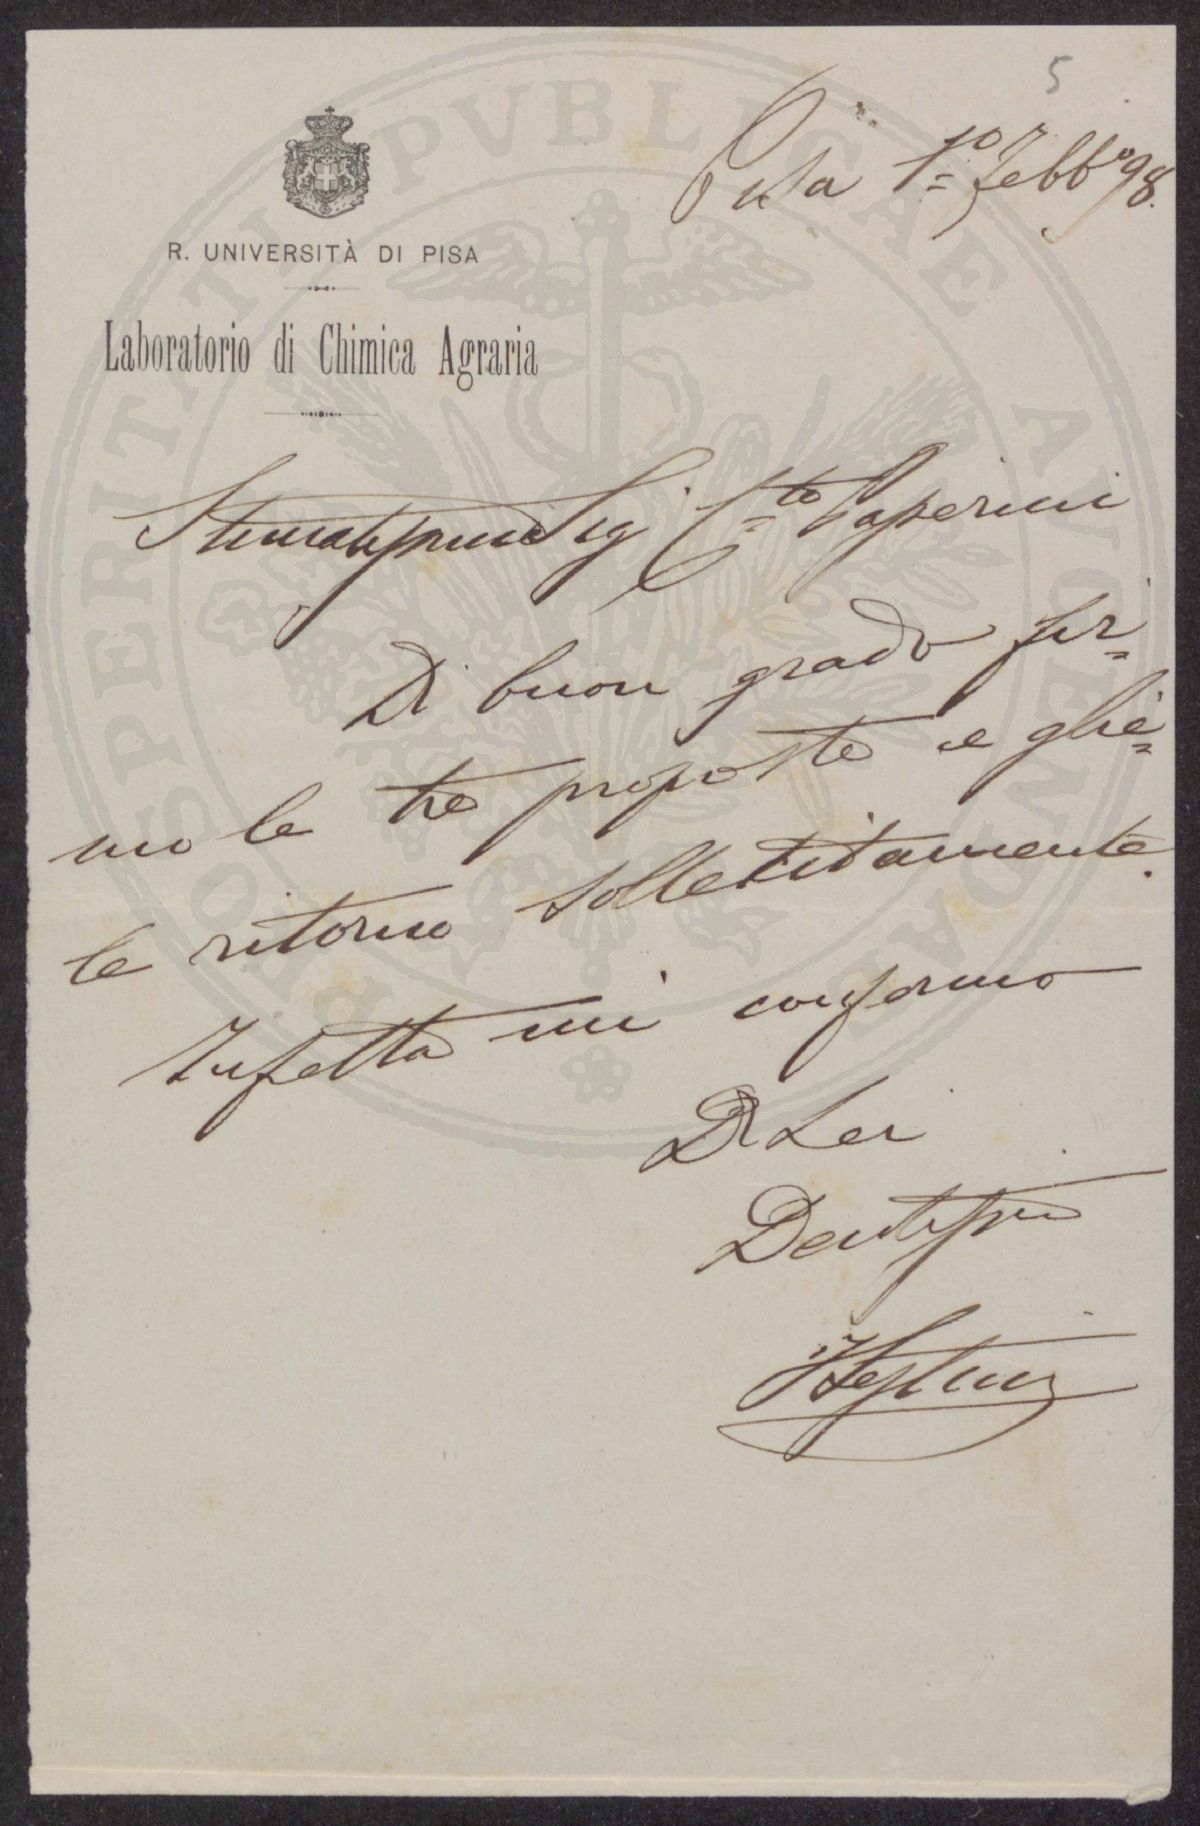 5
Pisa 1º Febbº 98.
R. UNIVERSITÀ DI PISA
Laboratorio di Chimica Agraria
Sig Cte Pasperini
Di buon grado fir=
mo le tre proposte e glie=
le ritorno sollecitamente.
In fretta mi confermo
Di Lei
PROSPERITATI PVBLICAE AVGENDAE